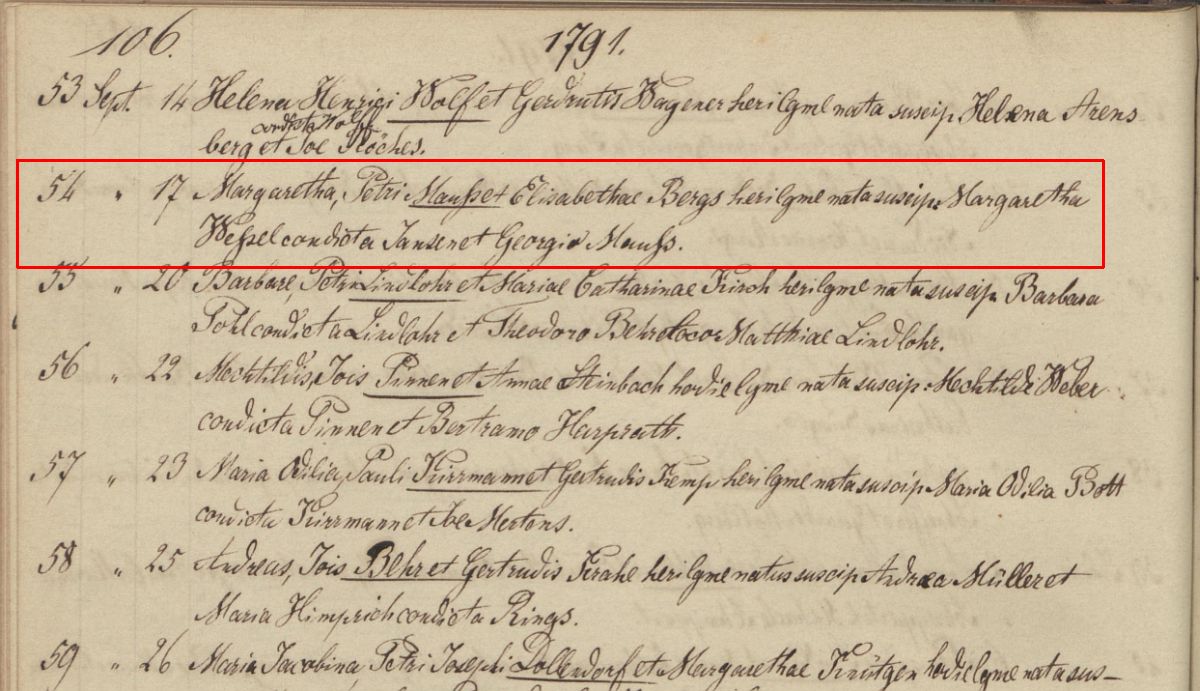 106. 1791.
53 Sept. 14 Helena Henrici Wolf et Gerdrutis Wagener heri lgme nata suscip Helena Arens
condicta Wolf
berg et Joe Plöches.
54 " 17 Margaretha, Petri Mauss et Elisabethae Bergs heri lgme nata suscip: Margaretha
Wessel condicta Jansen et Georgio Mauss.
55 " 20 Barbara, Petri Lindlohr et Mariae Catharinae Kirch heri lgme nata suscip. Barbara
Pohl condicta Lindlohr et Theodoro Behr loco Matthiae Lindlohr.
56 " 22 Mechtildis, Jois Pinnen et Annae Steinbach hodie lgme nata suscip: Mechtildi Weber
condicta Pinnen et Bertramo Harprath.
57 " 23 Maria Odilia, Pauli Kurrmann et Gertrudis Kemp heri lgme nata suscip Maria Odilia Bott
condicta Kurrmann et Joe Mertens.
58 " 25 Andreas, Jois Behr et Gertrudis Krahe heri lgme natus suscip Andrea Müller et
Maria Himprich condicta Rings.
59 " 26 Maria Jacobina, Petri Josephi Dollendorf et Margarethae Krütgen hodie lgme nata sus-